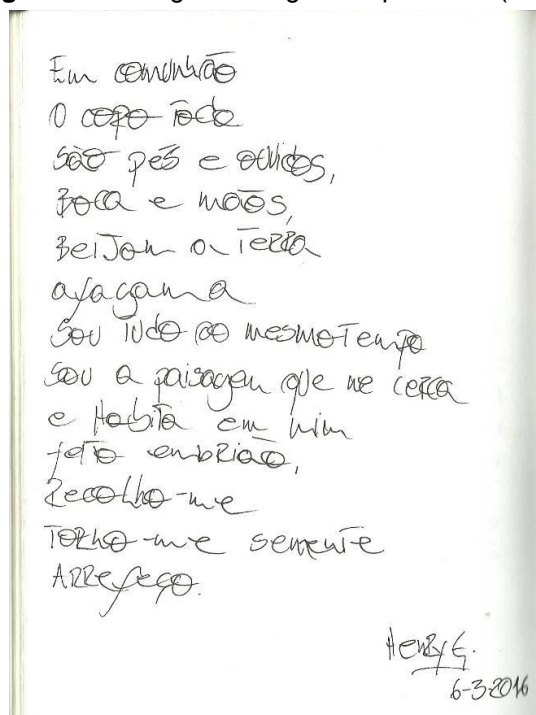 Em comunhão
O copo todo
São pés e ouvidos,
Boca e mãos,
Beijam a Terra
afagam a
Sou tudo ao mesmo tempo
Sou a paisagem que me cerca
e Habita em mim
feto embrião,
Recolho-me
Torno-me semente
Arrefeço.
Henry G.
6-3-2016